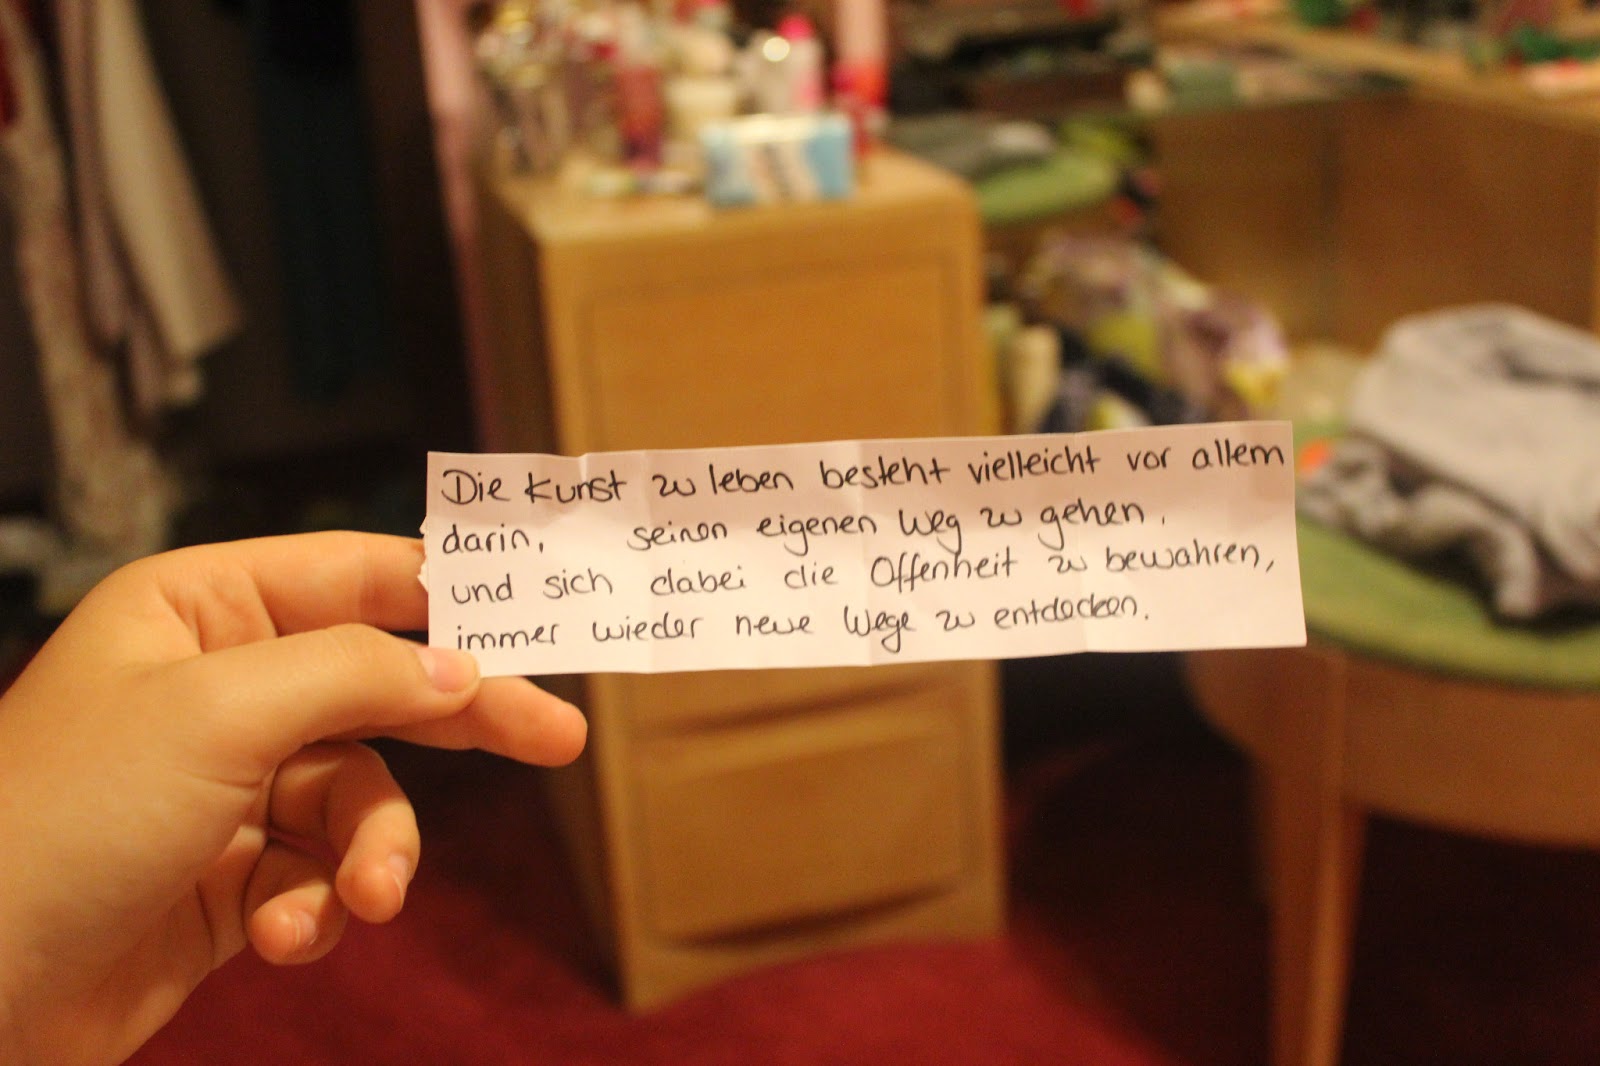 Die Kunst zu leben besteht vielleicht vor allem
darin, seinen eigenen Weg zu gehen,
und sich dabei die Offenheit zu bewahren,
immer wieder neue Wege zu entdecken.